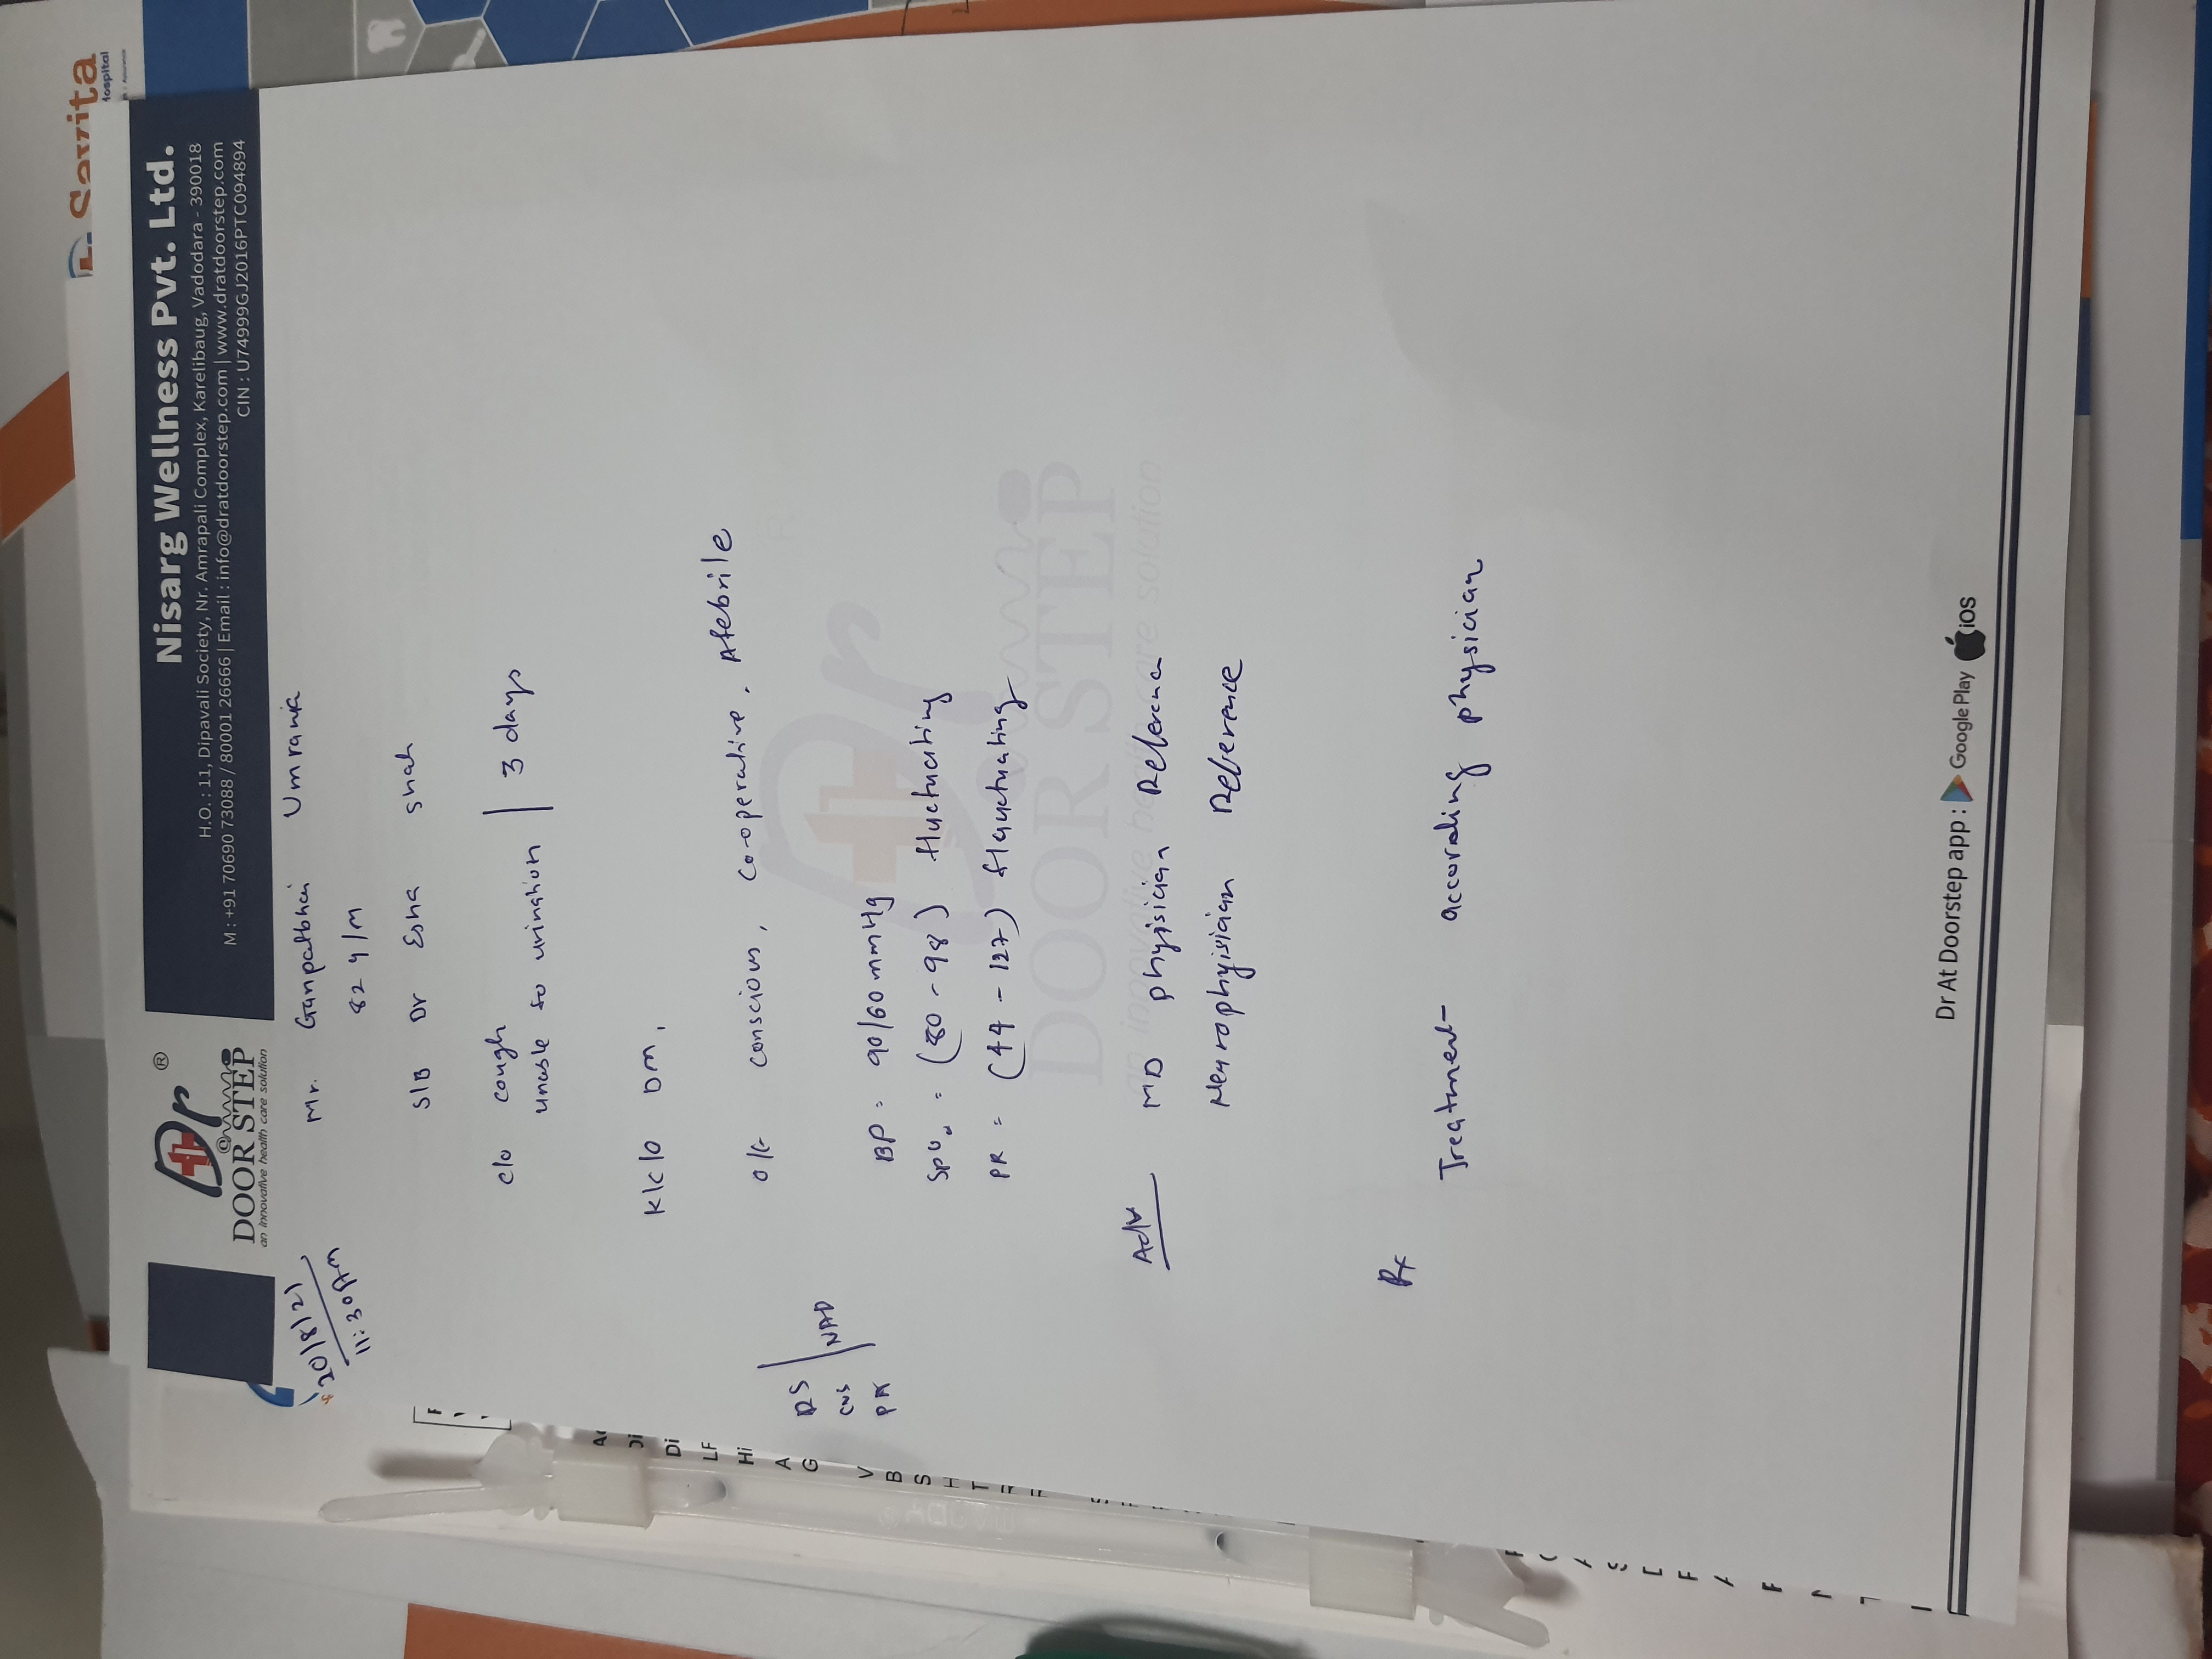 Savita
Hospital
Dr ®
@
DOOR STEP
an innovative health care solution
Nisarg Wellness Pvt. Ltd.
H.O. : 11, Dipavali Society, Nr. Amrapali Complex, Karelibaug, Vadodara - 390018
M : +91 70690 73088 / 80001 26666 | Email : info@dratdoorstep.com | www.dratdoorstep.com
CIN : U74999GJ2016PTC094894
20/8/21
11:30 AM
Mr. Ganpatbhai Umrania
82 y/M
S/B Dr Esha Shah
c/o cough
unable to urination | 3 days
K/c/o DM,
o/E conscious, Co-operative, Afebrile
RS
CNS
PA
NAD
BP = 90/60 mmHg
SpO2 = (80 - 98) fluctuating
PR = (44 - 127) flauctuating
Adv MD phyisician Reference
Neurophyisician Reference
Rx
Treatment according physician
Dr
DOOR STEP
an innovative health care solution
Dr At Doorstep app : Google Play iOS
Di
LF
Hi
A
G
V
B
S
H
T